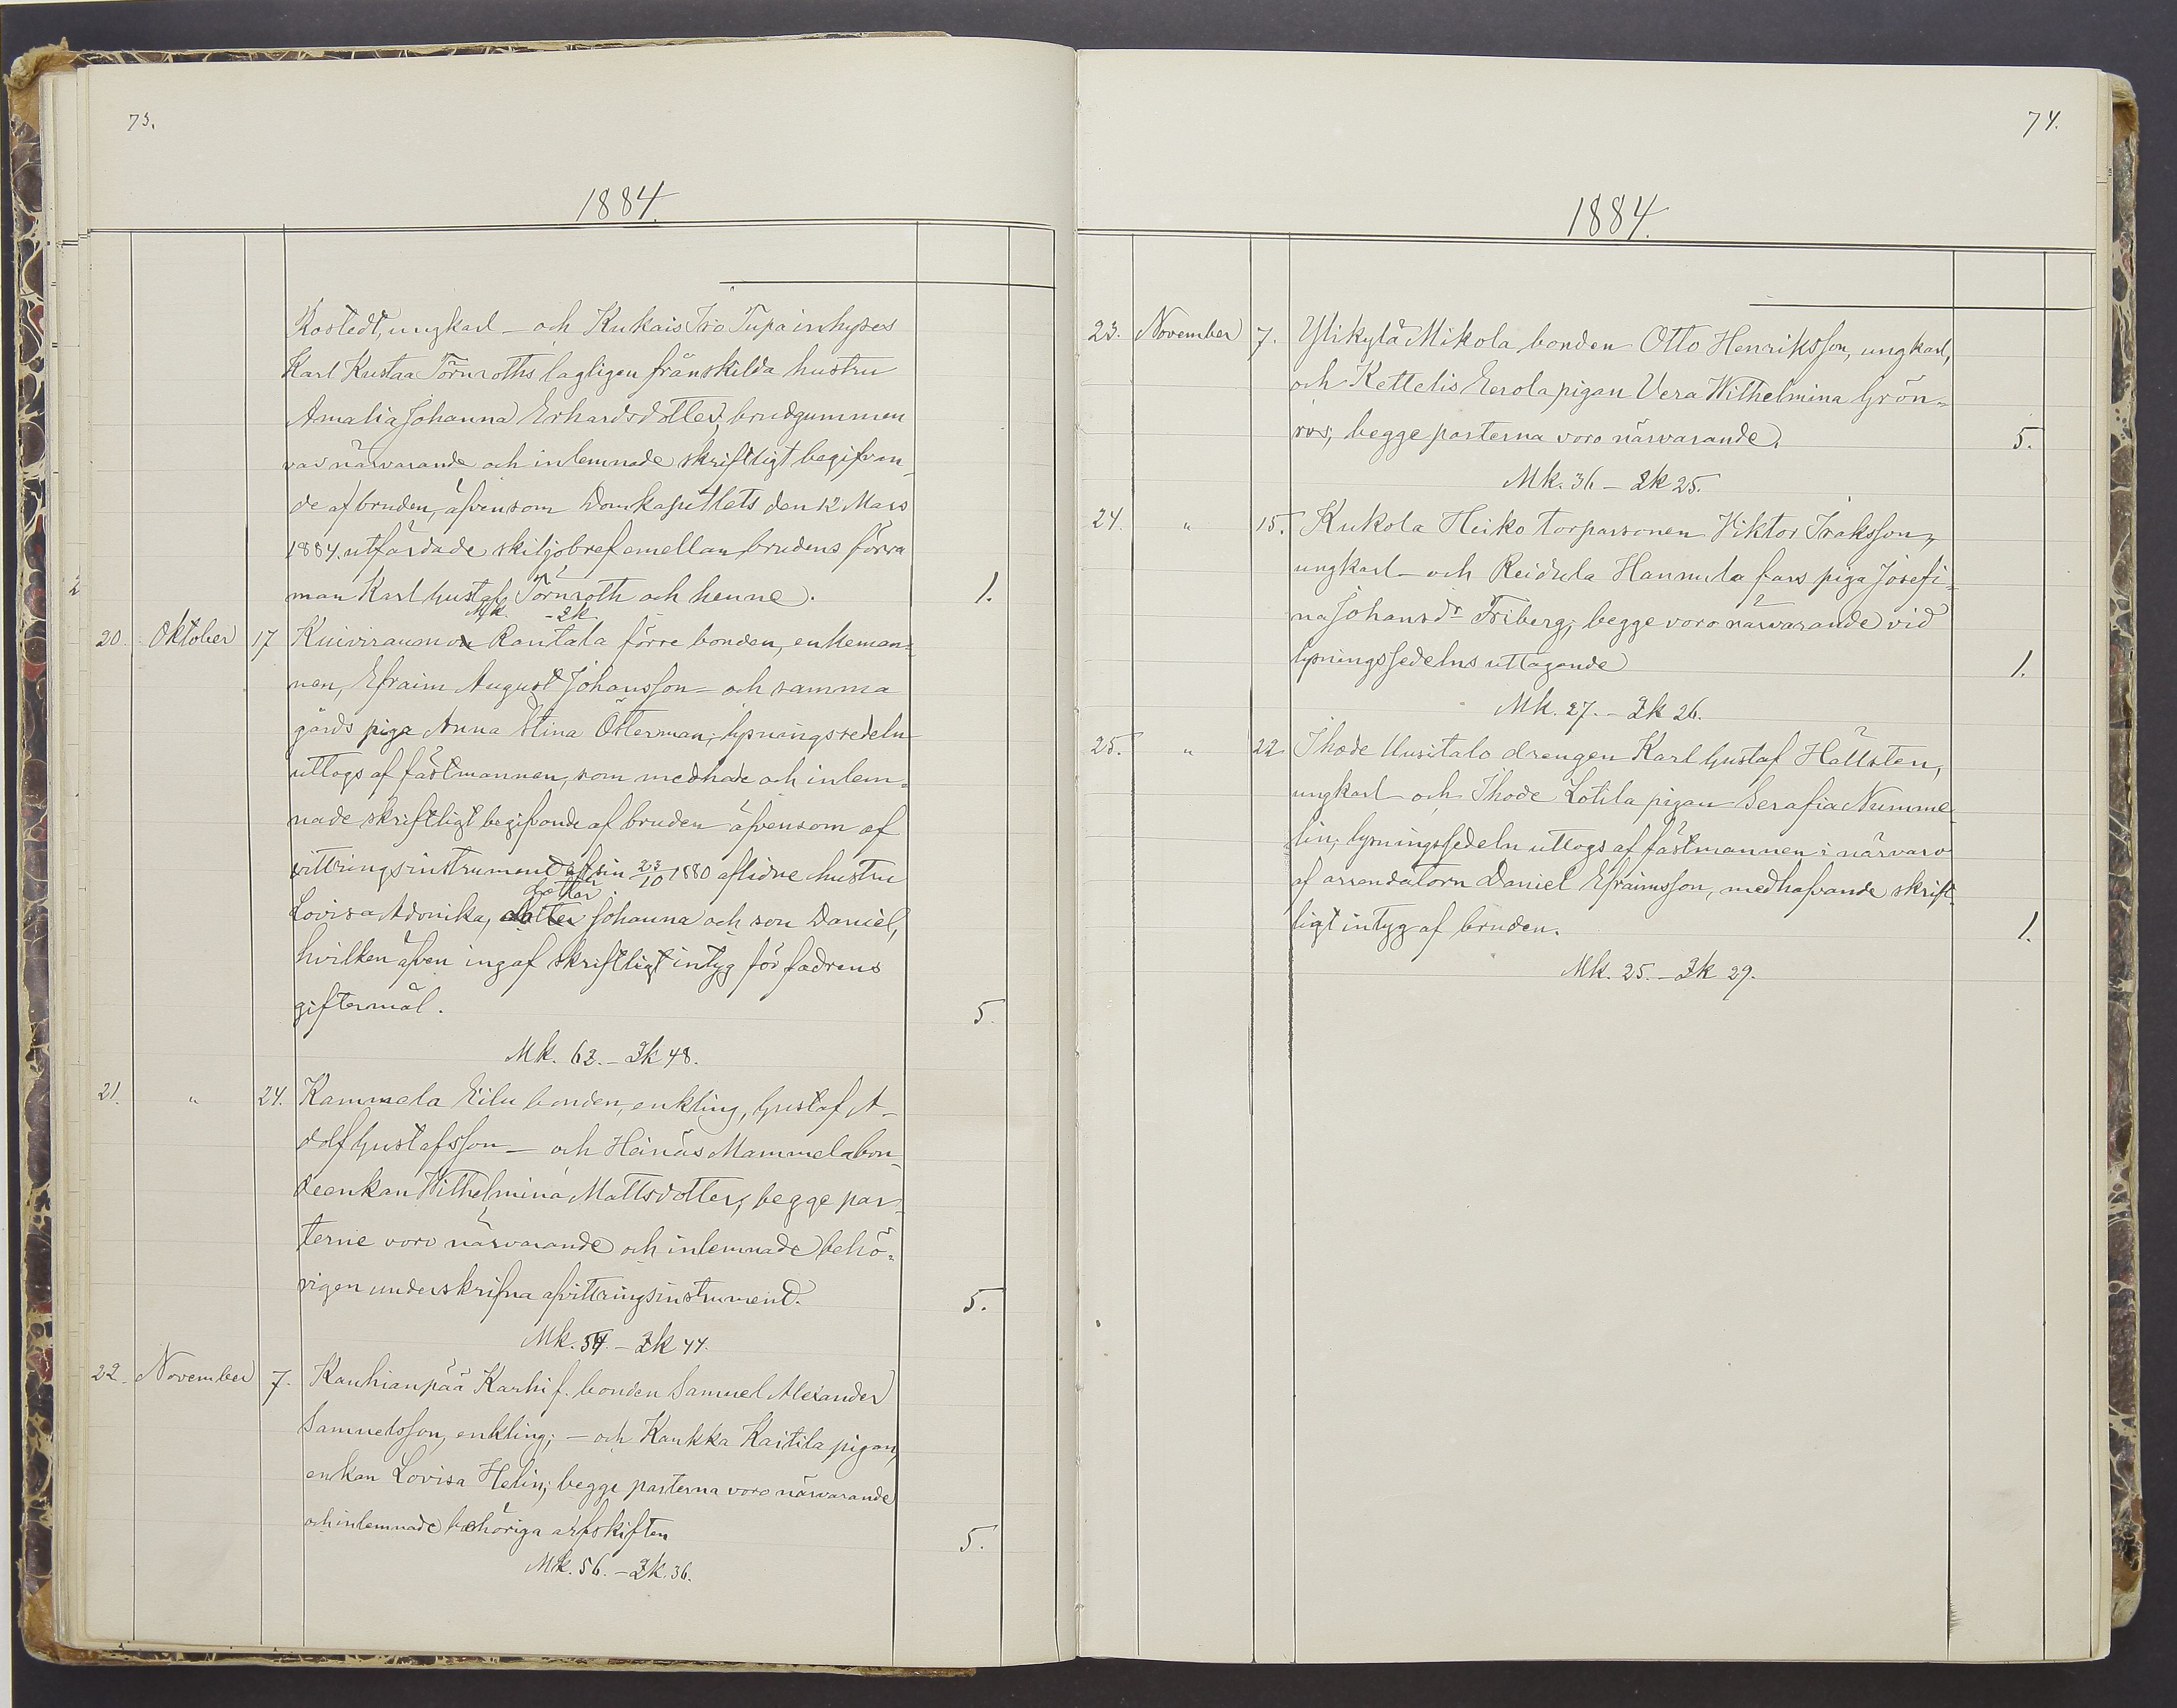 73.
1884.
Kostedt, ungkarl – och Kukais Iso Tupa inhyses
Karl Kustaa Törnroths lagligen frånskilda hustru
Amalia Johanna Erhardsdotter; brudgummen
var närvarande och inlemnade skriftligt begifvan-
de af bruden, äfvensom Domkapitlets den 12 Mars
1884 utfärdade skiljobref emellan brudens förra
man Karl Gustaf Törnroth och henne. 1.
Mk. - Qk.
20. Oktober 17 Kuivirauman Rantala förre bonden, enkeman-
nen, Efraim August Johansson – och samma
gårds piga Anna Stina Österman; lysningssedeln
uttogs af fästmannen, som medhade och inlem-
nade skriftligt begifvande af bruden äfvensom af
vittringsinstrument efter sin 23/10 1880 aflidne hustru
dotter
Lovisa Adonika, dotter Johanna och son Daniel,
hvilken äfven ingaf skriftligt intyg för fadrens
giftermål. 5.
Mk. 62. – Qk 48.
21. " 24. Kammela Eilu bonden, enkling, Gustaf A-
dolf Gustafsson – och Heinäs Mammela bon-
deenkan Wilhelmina Mattsdotter; begge par-
terne voro närvarande och inlemnade behö-
rigen underskrifna afvittringsinstrument. 5.
Mk. 54. – Qk 44.
22. November 7. Kauhianpää Karhi f. bonden Samuel Alexander
Samuelsson, enkling; – och Kaukka Kastila pigan,
enkan Lovisa Helin; begge parterna voro närvarande
och inlemnade behöriga arfskiften 5.
Mk. 56. – Qk. 36.
74.
1884.
23. November 7. Ylikylä Mikola bonden Otto Henriksson, ungkarl,
och Kettelis Eerola pigan Vera Wilhelmina Grön-
ros; begge parterna voro närvarande. 5.
Mk. 36 – Qk 25.
24. " 15. Kukola Heiko torparsonen Viktor Isaksson,
ungkarl – och Reidula Hannula fars piga Josefi-
na Johansdr Friberg; begge voro närvarande vid
lysningssedelns uttagande 1.
Mk. 27. – Qk 26.
25. " 22 Ihode Uusitalo drengen Karl Gustaf Hällsten,
ungkarl och Ihode Lotila pigan Serafia Numme-
lin; lysningssedeln uttogs af fästmannen i närvaro
af arrendatorn Daniel Efraimsson, medhafvande skrift-
ligt intyg af bruden. 1.
Mk. 25. – Qk 29.